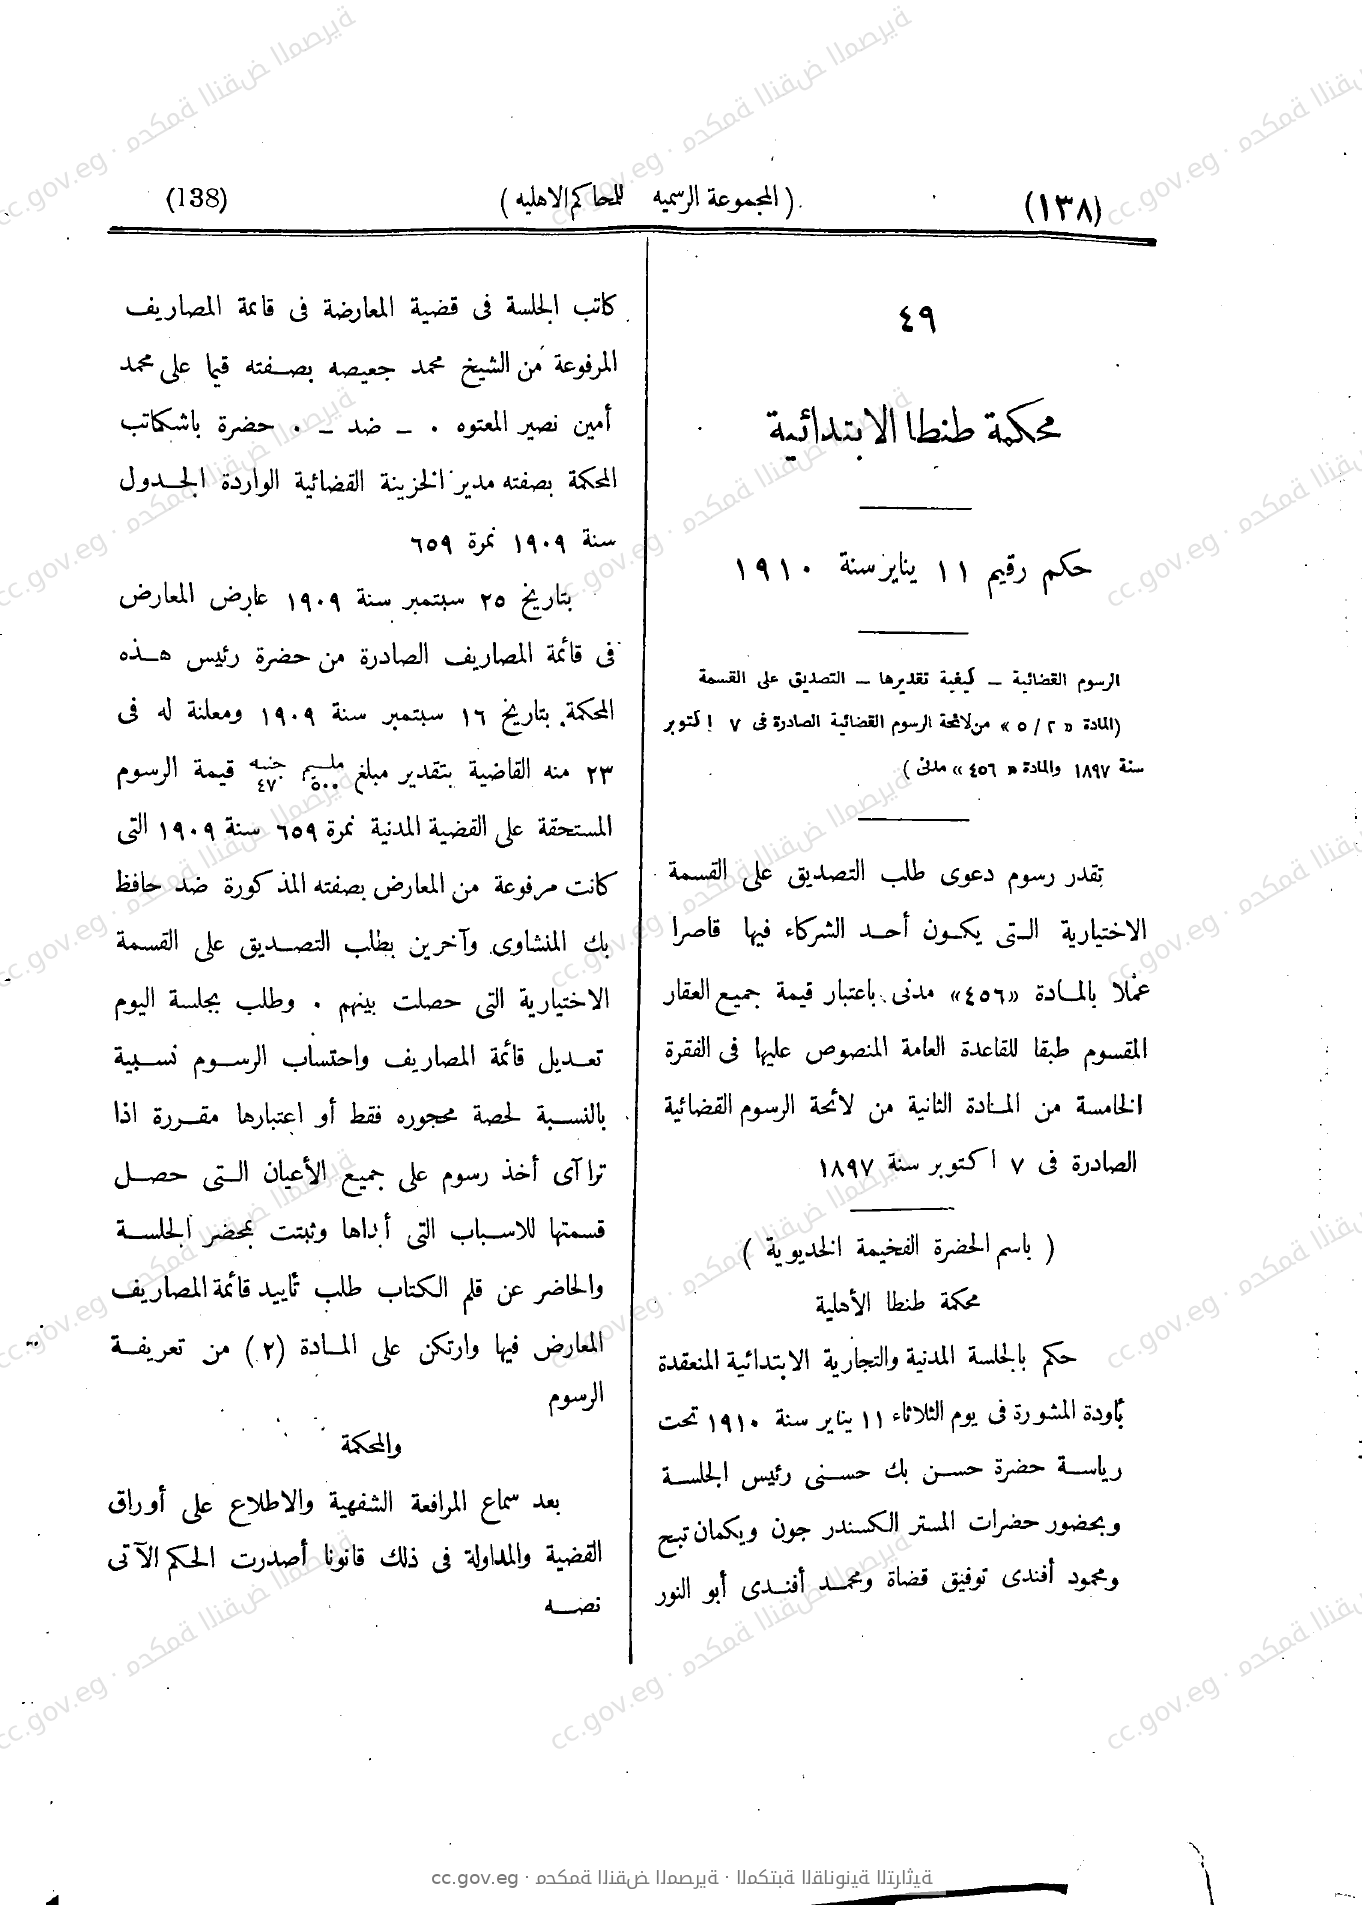 (١٣٨) (المجموعة الرسميه للمحاكم الاهليه) (138)
٤٩
محكمة طنطا الابتدائية
حكم رقيم ١١ يناير سنة ١٩١٠
الرسوم القضائية ــ كيفية تقديرها ــ التصديق على القسمة
(المادة « ٥/٢ » من لائحة الرسوم القضائية الصادرة فى ٧ اكتوبر
سنة ١٨٩٧ والمادة « ٤٥٦ » مدنى )
تقدر رسوم دعوى طلب التصديق على القسمة
الاختيارية التى يكون أحد الشركاء فيها قاصرا
عملا بالمادة «٤٥٦» مدنى باعتبار قيمة جميع العقار
المقسوم طبقا للقاعدة العامة المنصوص عليها فى الفقرة
الخامسة من المادة الثانية من لائحة الرسوم القضائية
الصادرة فى ٧ اكتوبر سنة ١٨٩٧
( باسم الحضرة الفخيمة الخديوية )
محكمة طنطا الأهلية
حكم بالجلسة المدنية والتجارية الابتدائية المنعقدة
بأودة المشورة فى يوم الثلاثاء ١١ يناير سنة ١٩١٠ تحت
رياسة حضرة حسن بك حسنى رئيس الجلسة
وبحضور حضرات المستر الكسندر جون ويكمان تبج
ومحمود أفندى توفيق قضاة ومحمد أفندى أبو النور
كاتب الجلسة فى قضية المعارضة فى قائمة المصاريف
المرفوعة من الشيخ محمد جعيصه بصفته قيما على محمد
أمين نصير المعتوه ٠ ــ ضد ــ ٠ حضرة باشكاتب
المحكمة بصفته مدير الخزينة القضائية الواردة الجدول
سنة ١٩٠٩ نمرة ٦٥٩
بتاريخ ٢٥ سبتمبر سنة ١٩٠٩ عارض المعارض
فى قائمة المصاريف الصادرة من حضرة رئيس هذه
المحكمة بتاريخ ١٦ سبتمبر سنة ١٩٠٩ ومعلنة له فى
٢٣ منه القاضية بتقدير مبلغ مليم ٥٠٠ جنيه ٤٧ قيمة الرسوم
المستحقة على القضية المدنية نمرة ٦٥٩ سنة ١٩٠٩ التى
كانت مرفوعة من المعارض بصفته المذكورة ضد حافظ
بك المنشاوى وآخرين بطلب التصديق على القسمة
الاختيارية التى حصلت بينهم ٠ وطلب بجلسة اليوم
تعديل قائمة المصاريف واحتساب الرسوم نسبية
بالنسبة لحصة محجوره فقط أو اعتبارها مقررة اذا
تراآى أخذ رسوم على جميع الأعيان التى حصل
قسمتها للاسباب التى أبداها وثبتت بمحضر الجلسة
والحاضر عن قلم الكتاب طلب تأييد قائمة المصاريف
المعارض فيها وارتكن على المادة (٢) من تعريفة
الرسوم
والمحكمة
بعد سماع المرافعة الشفهية والاطلاع على أوراق
القضية والمداولة فى ذلك قانونا أصدرت الحكم الآتى
نصه
cc.gov.eg · محكمة النقض المصرية · المكتبة القانونية التراثية